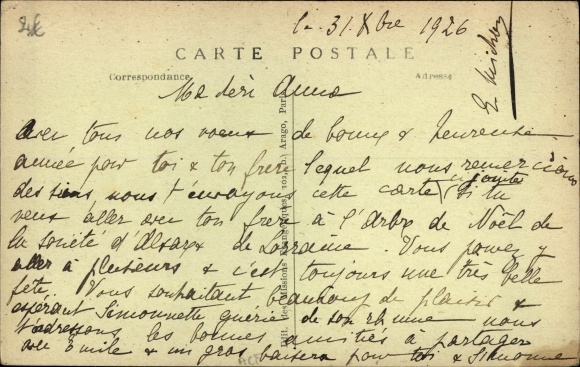 le 31 Xbre 1926
CARTE POSTALE
Correspondance
Adresse
Ma deri Anna
avec tous nos voeux de bonne & heureuse
année pour toi & ton frère lequel nous remercions
des siens, nous t'envoyons cette carte ci jointe si tu
veux aller avec ton frère à l'Arbre de Noël de
la société d'Alsace & de Lorraine. Vous pouvez y
aller à plusieurs & c'est toujours une très belle
fête. Vous souhaitant beaucoup de plaisir &
espérant Simonnette guérie de son rhume nous
t'adressons les bonnes amitiés à partager
avec Emile & un gros baiser pour toi & Simonne
Edit. des Missions Evangéliques, 102, Bd Arago, Paris